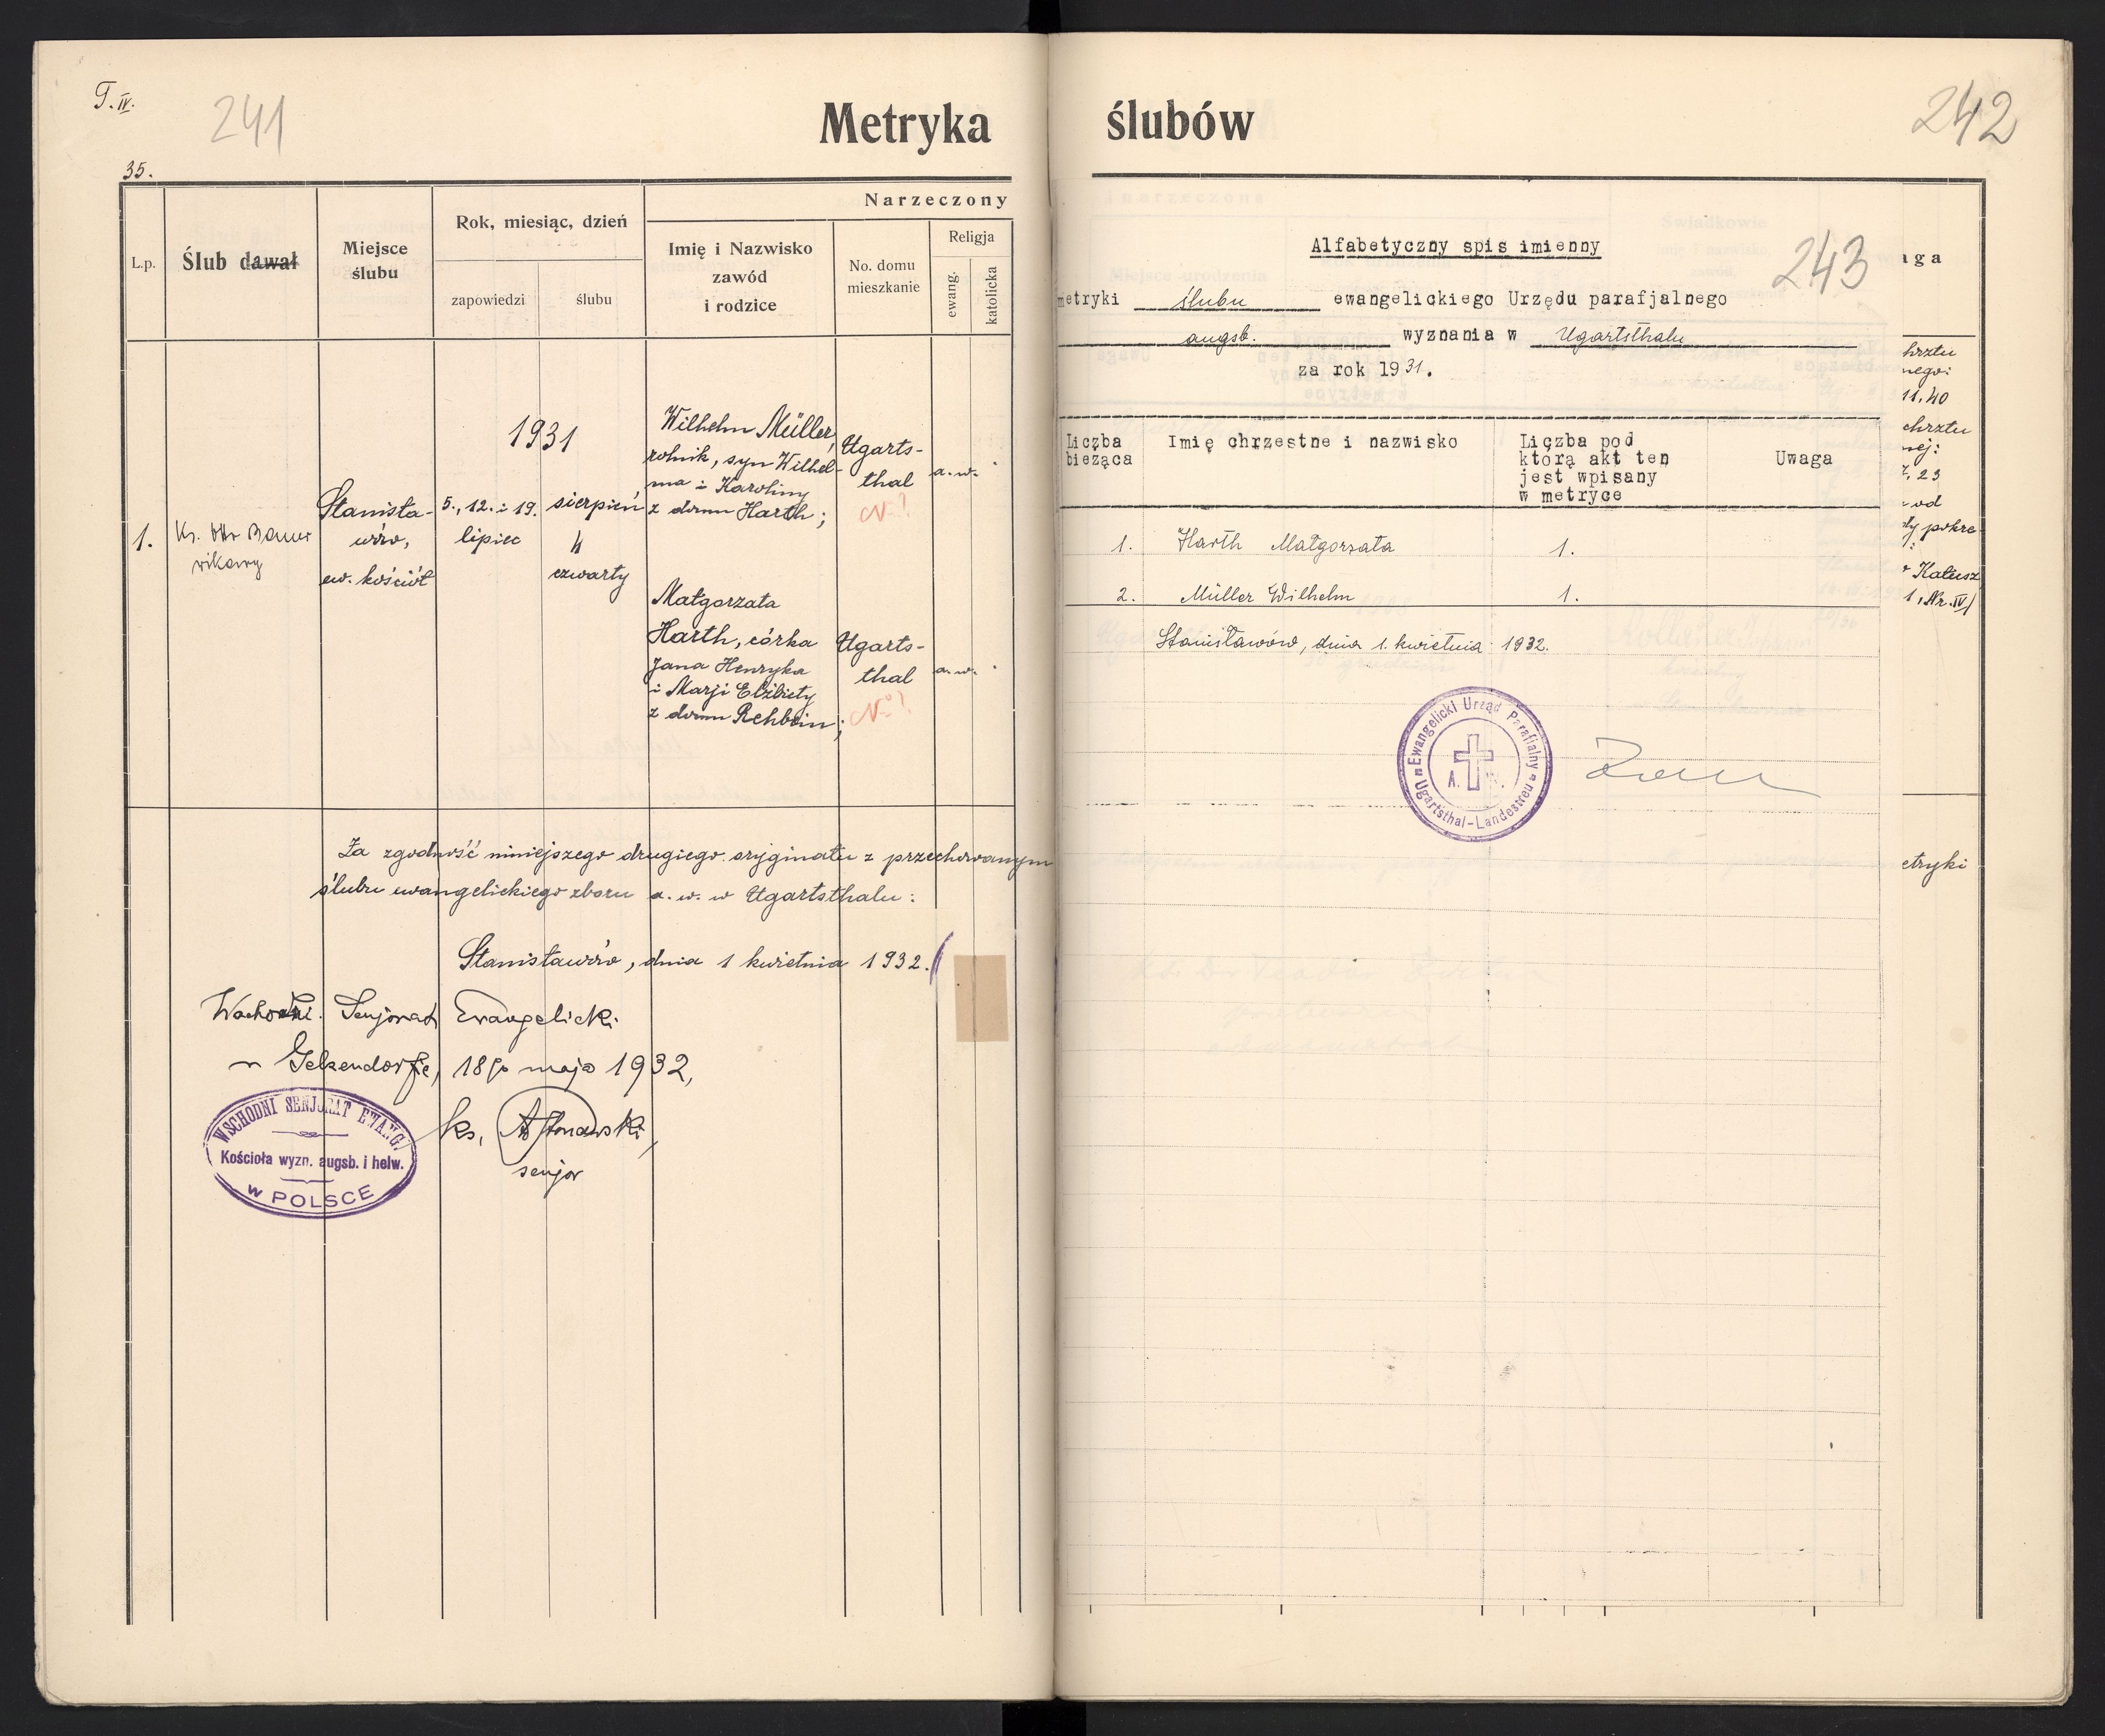 T. IV.
241
Metryka
35.
L.p.
Ślub dawał
Miejsce
ślubu
Rok, miesiąc, dzień
zapowiedzi
ślubu
Narzeczony
Imię i Nazwisko
zawód
i rodzice
No. domu
mieszkanie
Religja
ewang.
katolicka
1.
Ks.
wikary
Stanisła-
wów,
ew. kościół
1931
5., 12. i 19.
lipiec
sierpień
4
czwarty
Wilhelm Müller,
rolnik, syn Wilhel-
ma i Karoliny
z domu Harth;
Ugarts-
thal
N°?
a.w.
Małgorzata
Harth, córka
Jana Henryka
i Marji Elżbiety
z domu Rehbein;
Ugarts-
thal
N°?
a.w.
Za zgodność niniejszego drugiego oryginału z przechowanym
ślubu ewangelickiego zboru a. w. w Ugartsthalu:
Stanisławów, dnia 1 kwietnia 1932.
Wschodni Senjorat Ewangelicki
w Gelsendorfie, 18go maja 1932,
ks.
senjor
WSCHODNI SENJORAT EWANG.
Kościoła wyzn. augsb. i helw.
w POLSCE
ślubów
242
243
Alfabetyczny spis imienny
metryki ślubu ewangelickiego Urzędu parafjalnego
augsb. wyznania w Ugartsthalu
za rok 1931.
Liczba
bieżąca
Imię chrzestne i nazwisko
Liczba pod
którą akt ten
jest wpisany
w metryce
Uwaga
1. Harth Małgorzata 1.
2. Müller Wilhelm 1.
Stanisławów, dnia 1. kwietnia 1932.
Ewangelicki Urząd Parafialny
A. W.
Ugartsthal-Landestreu
aga
hrztu
nego:
11,40
chrztu
nej:
7, 23
od
pokre-
Kałusz
1, Nr. IV)
etryki